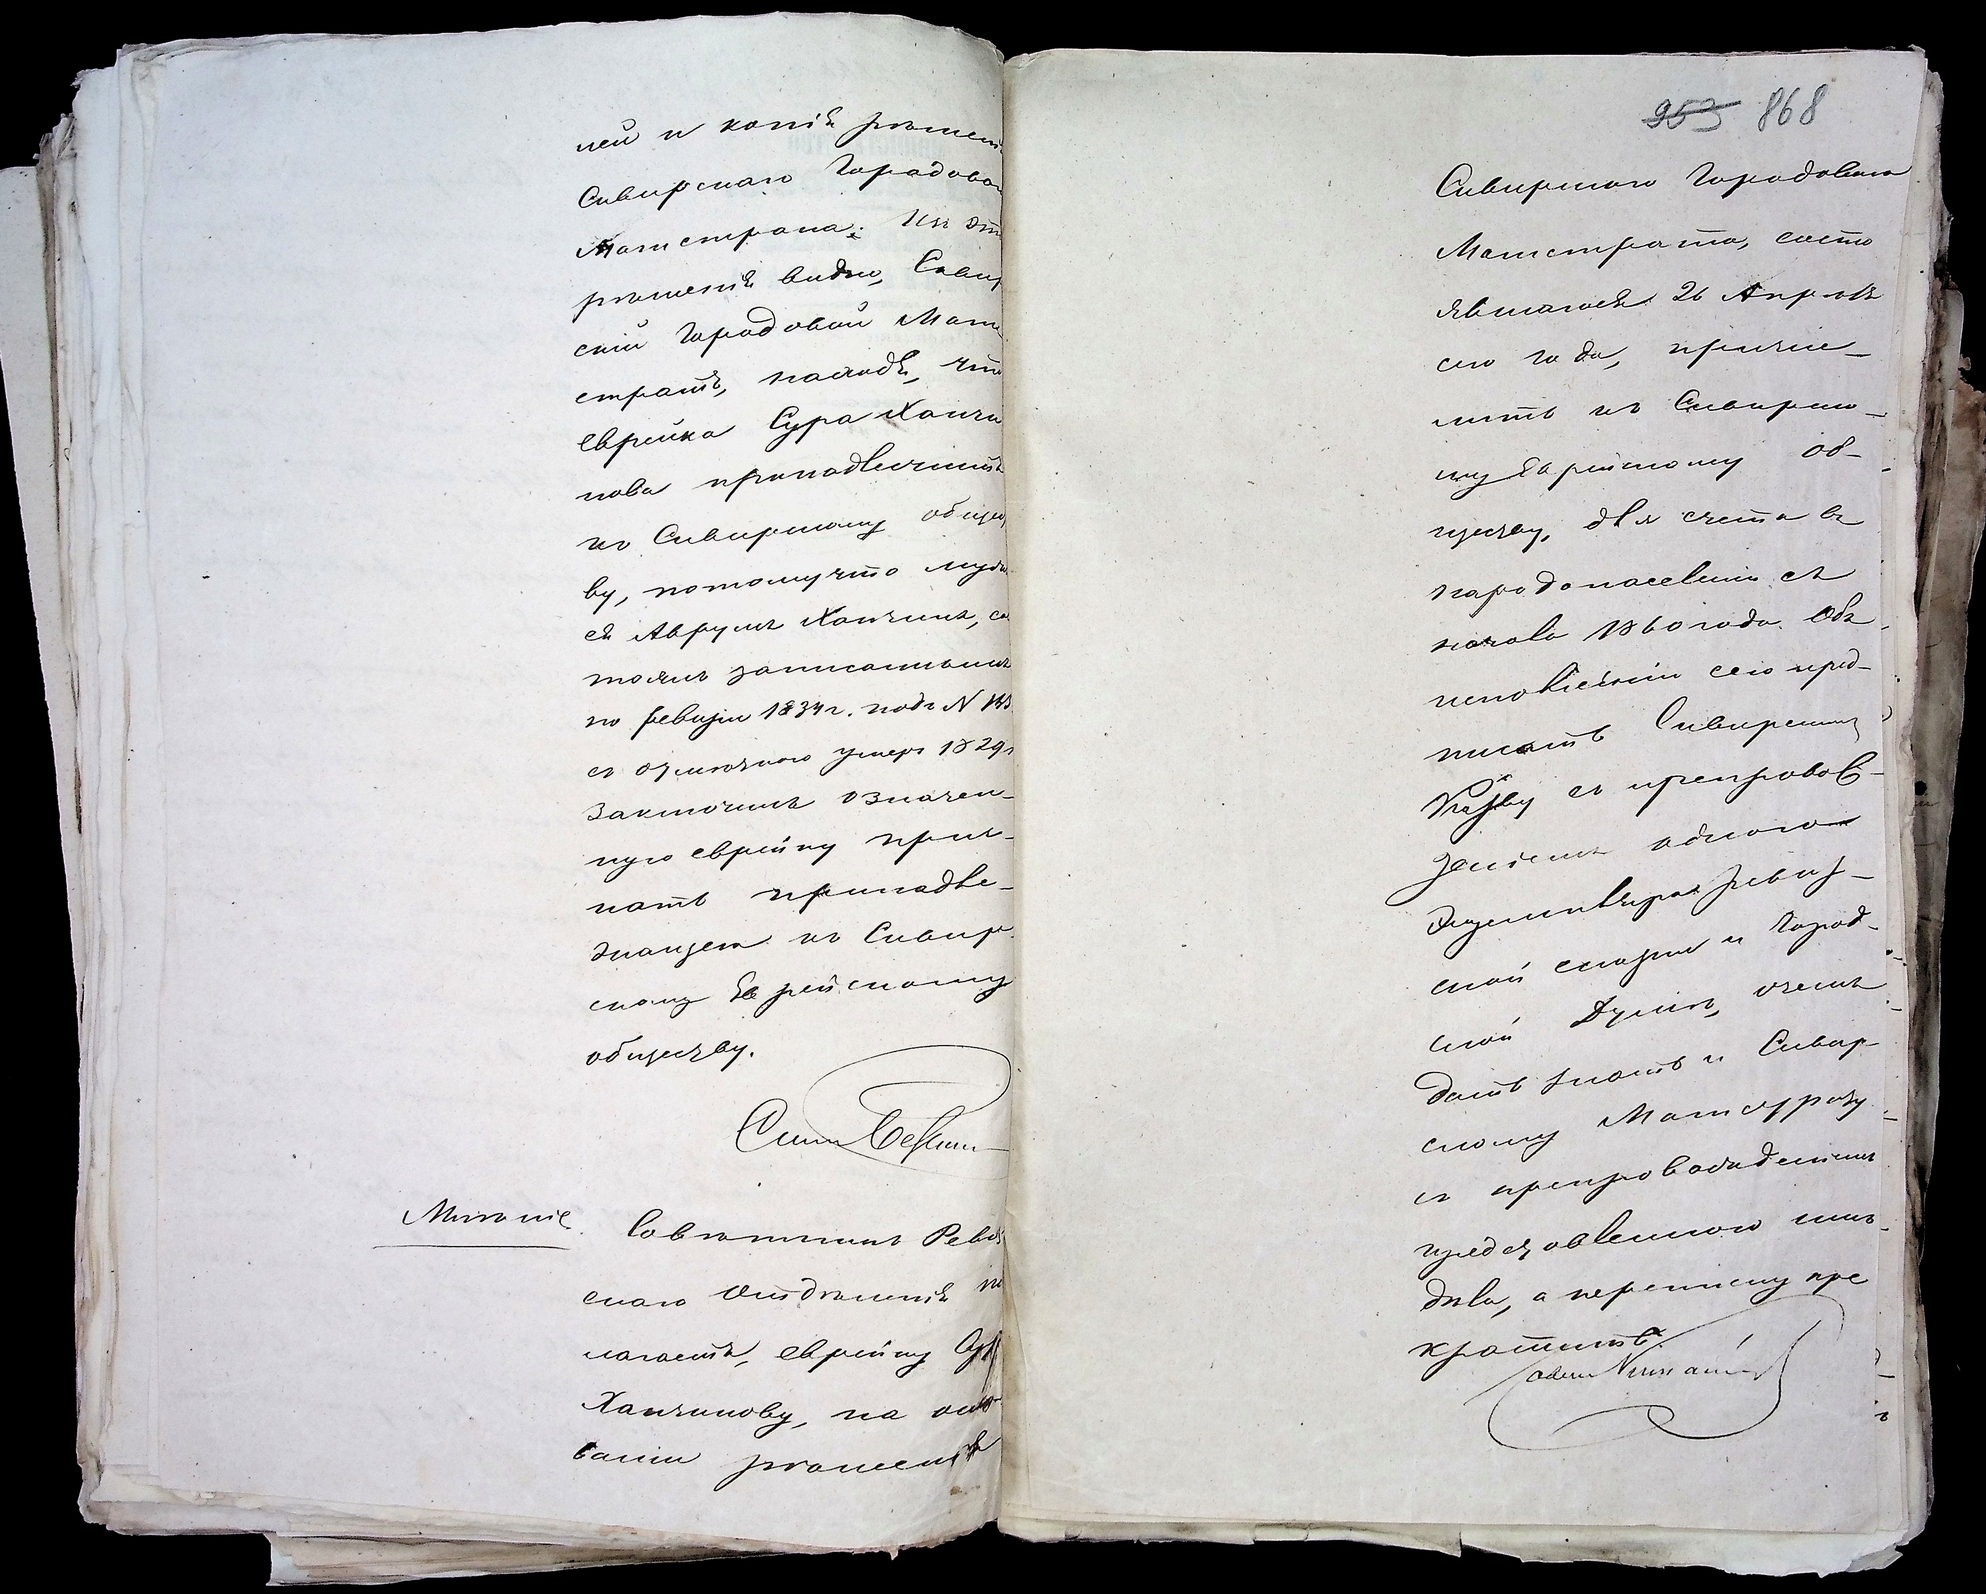 ней и копія рѣшені
Сквирскаго Городова
Магистрата. Изъ эт
рѣшенія видно, Сквир
скій Городовой Маги
стратъ, находя, что
Еврейка Сура Ханчи
нова принадлежитъ
къ Сквирскому общес
ву, потому что мужъ
ея Аврумъ Ханчинъ, со
тоялъ записаннымъ
по ревизіи 1834 г. подъ N
съ отмѣткою умеръ 1829
заключилъ означен-
ную еврейку приз-
нать принадле-
жащею къ Сквир
скому Еврейскому
обществу.
Мнѣніе. Совѣтникъ Ревиз
скаго Отдѣленія по
лагаетъ, еврейку Сур
Ханчинову, на осно
ваніи рѣшенія
953 868
Сквирскаго Городоваго
Магистрата, состо
явшагося 26 Апрѣля
сего года, причис-
лить къ Сквирско-
му Еврейскому об-
ществу, для счета въ
народонаселеніи съ
начала 1860 года. Объ
исполненіи сего пред-
писать Сквирскому
Кзнву съ препровож-
деніемъ одного
Экземпляра ревиз-
ской сказки и Город-
ской Думѣ, о чемъ
дать знать и Сквир-
скому Магистрату
съ препровожденіемъ
представленнаго имъ
дѣла, а переписку пре
кратить.